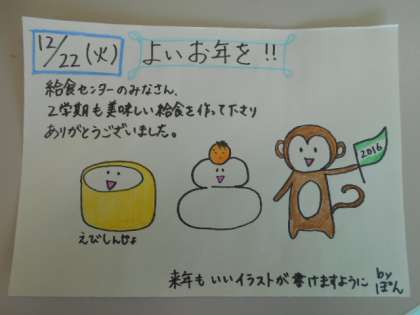 12/22(火)
よいお年を!!
給食センターのみなさん、
2学期も美味しい給食を作って下さり
ありがとうございました。
2016
えびしんじょ
来年もいいイラストが書けますように
by
ぽん